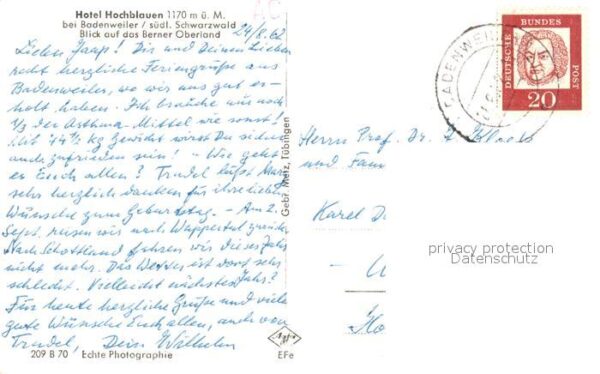 Hotel Hochblauen 1170 m ü. M.
bei Badenweiler / südl. Schwarzwald
Blick auf das Berner Oberland
24/8.62
Lieber Jaap! Dir und Deinen Lieben
recht herzliche Feriengrüße aus
Badenweiler, wo wir uns gut er-
holt haben. Ich brauche nur noch
1/3 der Asthma-Mittel wie sonst!
Mit 74½ kg Gewicht wirst Du sicher
auch zufrieden sein! - Wie geht
es Euch allen? Trudel läßt
sehr herzlich danken für ihre lieben
Wünsche zum Geburtstag. - Am 2.
Sept. reisen wir nach Wuppertal zurück.
Nach Schottland fahren wir dieses Jahr
nicht mehr. Das Wetter ist dort sehr
schlecht. Vielleicht nächstes Jahr?
Für heute herzliche Grüße und viele
gute Wünsche Euch allen, auch von
Trudel, Dein Wilhelm
209 B 70 Echte Photographie
Gebr. Metz, Tübingen
Agfa
EFe
BADENWEILER
DEUTSCHE BUNDESPOST
20
Herrn Prof. Dr.
und Fam
Karel
privacy protection
Datenschutz